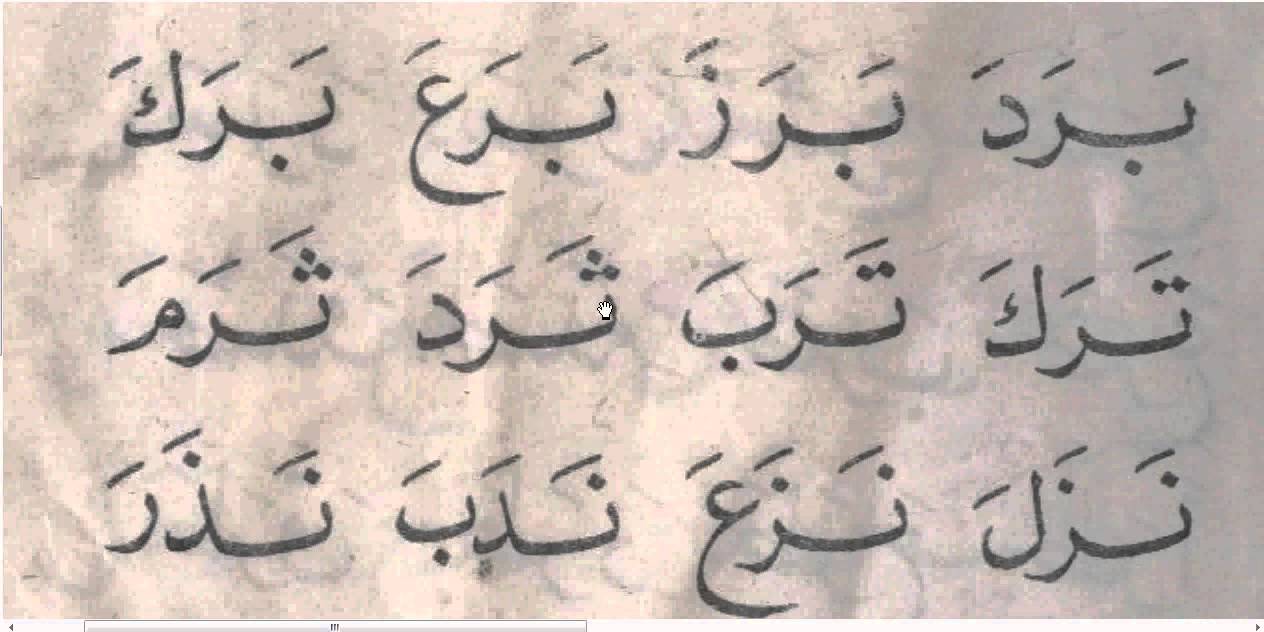 بَرَدَ بَرَزَ بَرَعَ بَرَكَ
تَرَكَ تَرَبَ ثَرَدَ ثَرَمَ
نَزَلَ نَزَعَ نَدَبَ نَذَرَ